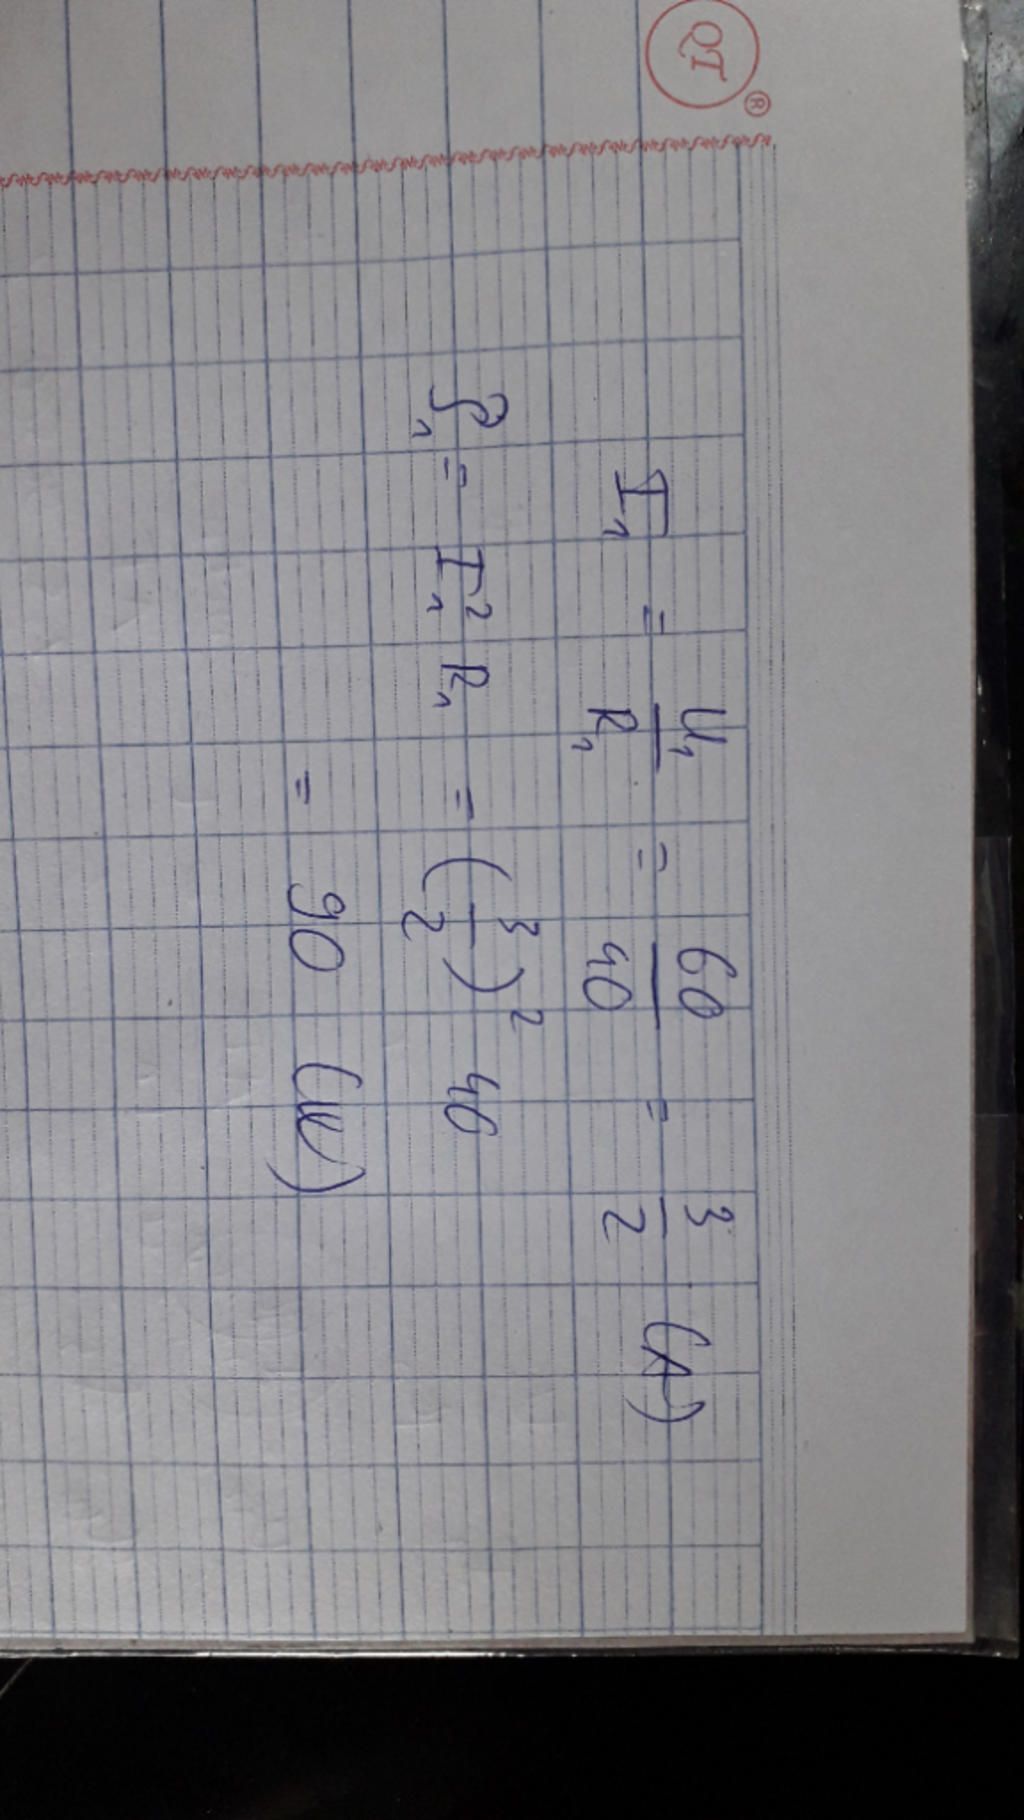 QT ®
I₁ = U₁/R₁ = 60/40 = 3/2 (A)
P₁ = I₁² R₁ = (3/2)² 40
= 90 (W)